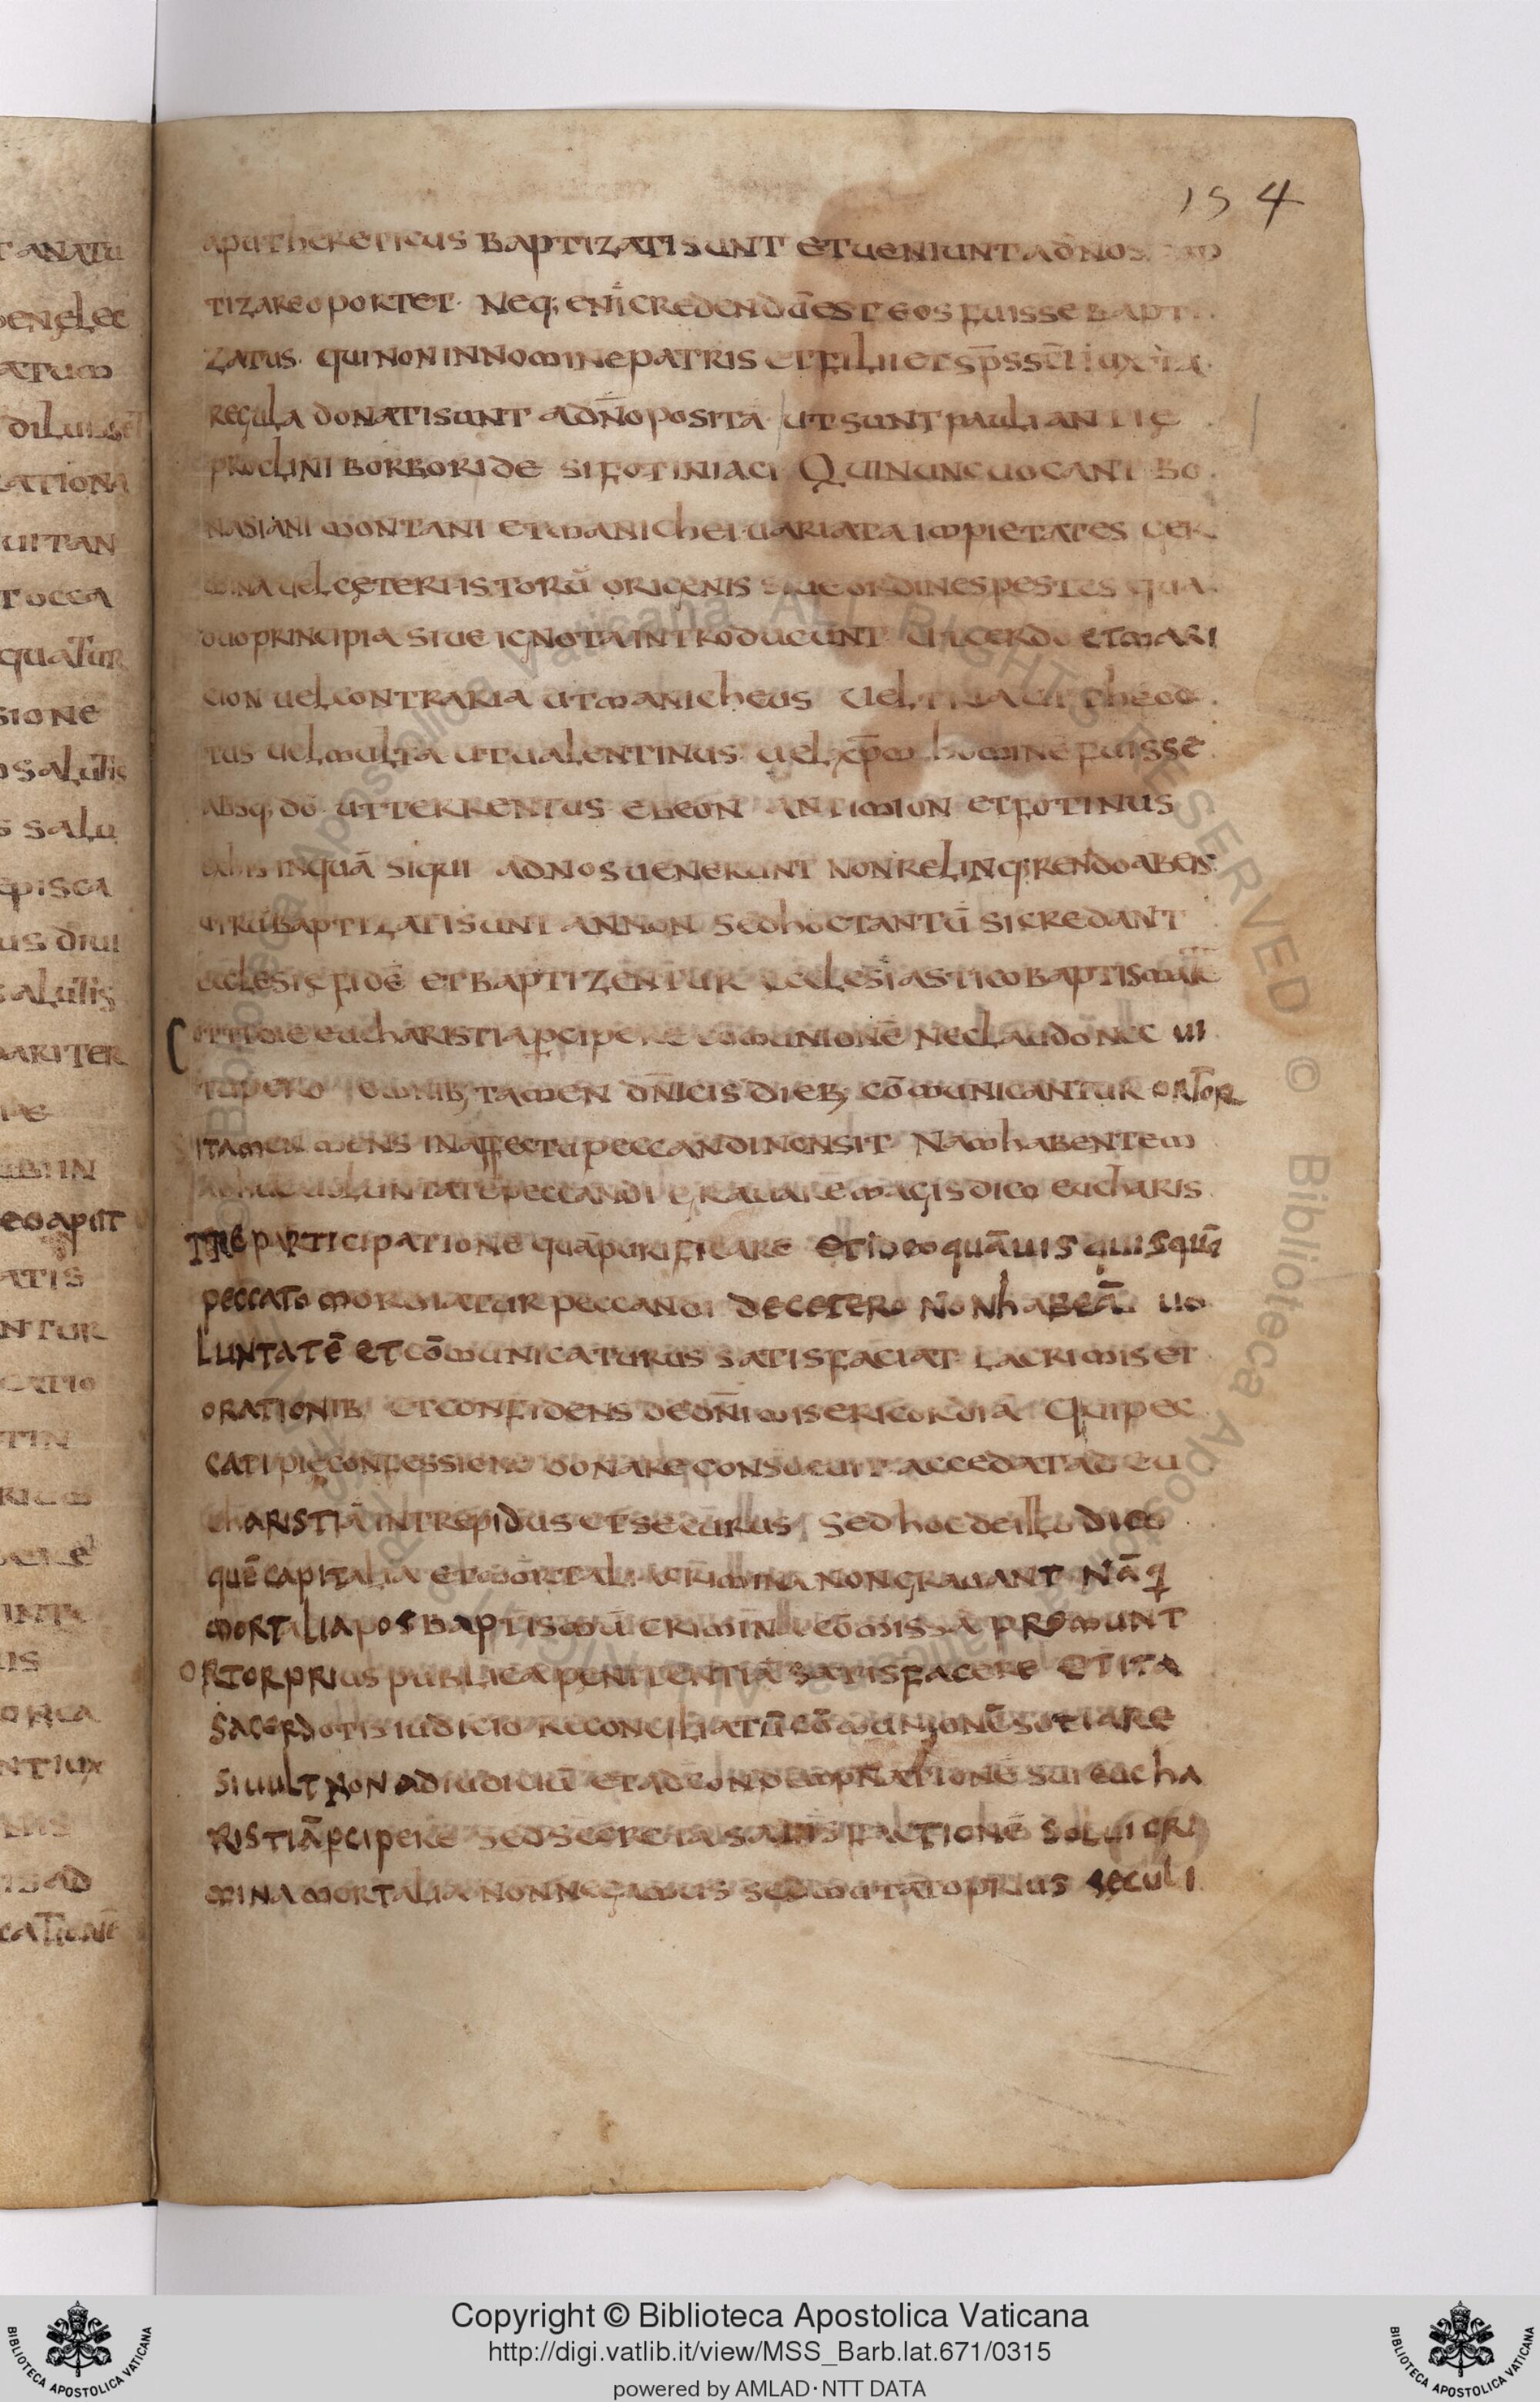 154
aputhereticus baptizati sunt et ueniunt ad nos
tizare oportet. Neq; eni credendū est eos fuisse bapti
zatus. qui non in nomine patris et filii et sp̄s sc̄i iuxta
regula donati sunt a dn̄o posita ut sunt paulianitę
proclini borboride sifotiniaci Qui nunc uocant bo
nasiani montani et manichei uariata impietates ger
mina uel ceteri istorū origenis siue ordines pestes qua
duo principia siue ignota introducunt ut cerdo et mar
cion uel contraria ut manicheus Uel tria ut theod
tus uel multa ut ualentinus uel xp̄m hominē fuissē
absq; dō ut terrentus ebeon antimion et fotinus
ex his inquā siqui ad nos uenerunt non relinqrendo ab eis
utrū baptizati sunt annon sed hoc tantū si credant
ecclesię fidē et baptizentur ecclesiastico baptismate
Cottidie eucharistia p̄cipere comunionē nec laudo nec ui
tupero omnib; tamen dn̄icis dieb; cōmunicantur ortor
si tamen mens in affectu peccandi non sit Nam habentem
adhuc uoluntatē peccandi grauarē magis dico eucharis
tię participatione quā purificare et ideo quāuis quisquā
peccato mordiatur peccandi decetero non habeā uo
luntatē et cōmunicaturus satisfaciat lacrimis et
orationib; et confidens de dn̄i misericordiā Qui pec
cati pię confessione donare consueuit accedat ad eu
charistiā intrepidus et securus, Sed hoc de illo dico
quē capitalia et mortalia crimina non grauant Nā q
mortilia pos baptismū crimina cōmissa premunt
ortor prius publica penitentiā satisfacere et ita
sacerdotis iudicio reconciliatū cōmunionē sotiare
si uult non ad iudiciū et ad condempnationē sui eucha
ristiā p̄cipere sed secreta satisfactionē solui cri
mina mortalia non negamus sed mutato prius seculi
Copyright © Biblioteca Apostolica Vaticana
http://digi.vatlib.it/view/MSS_Barb.lat.671/0315
powered by AMLAD·NTT DATA